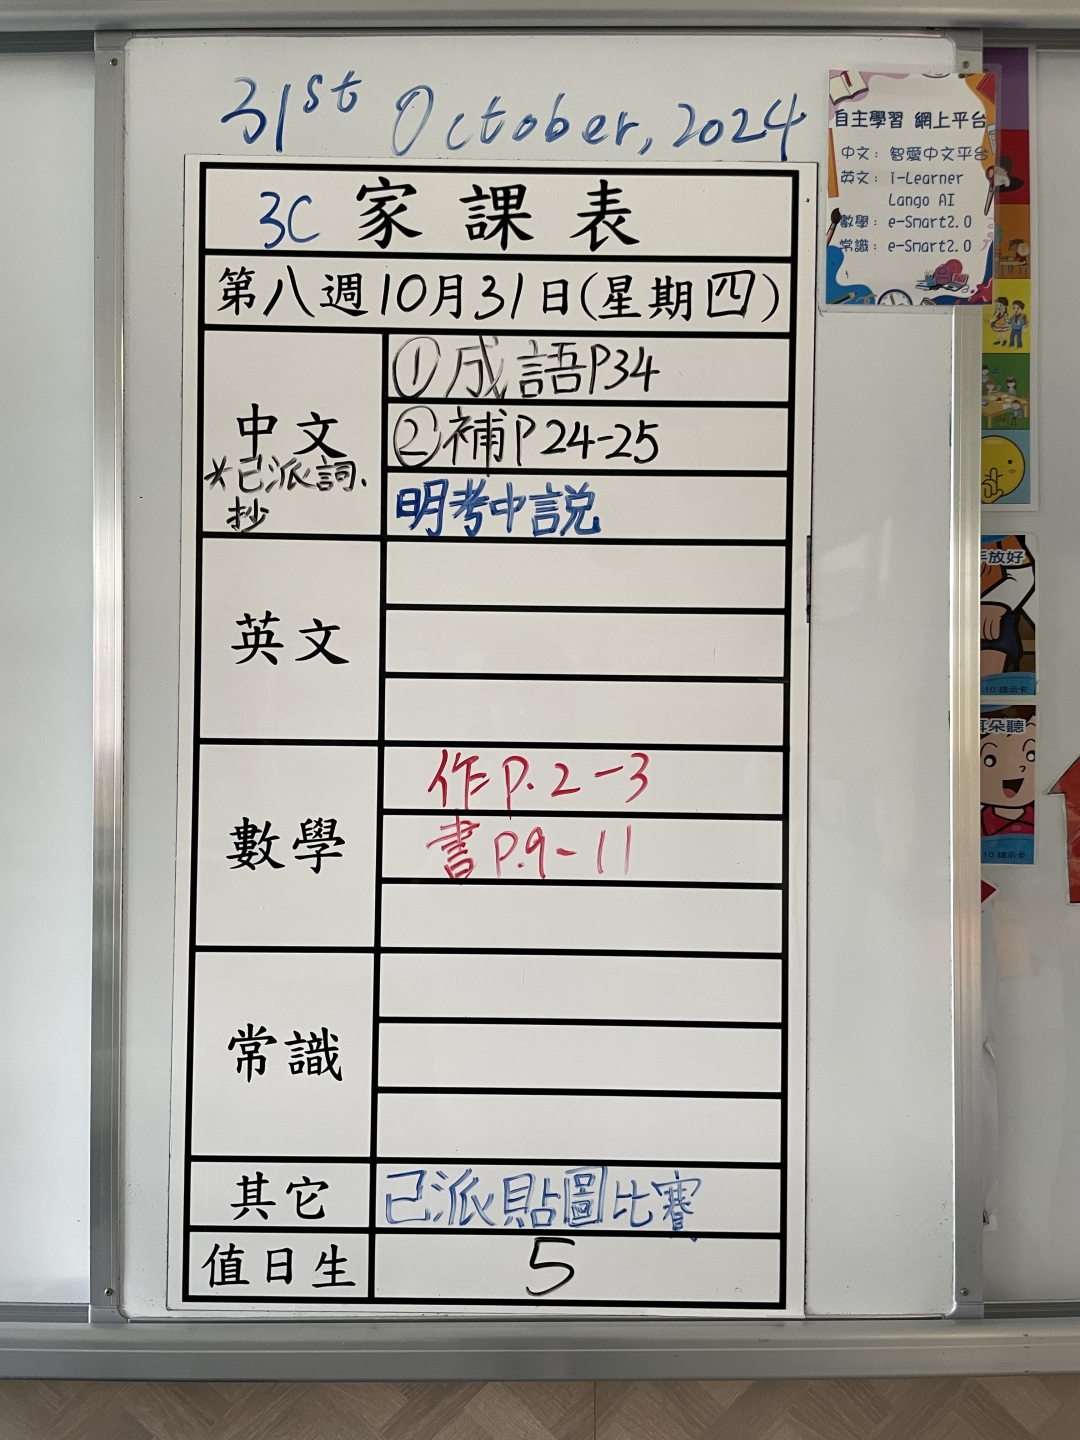 31st October, 2024
3C 家課表
第八週10月31日(星期四)
中文
*已派詞、
抄
①成語P34
②補P24-25
明考中說
英文
數學
作P.2-3
書P.9-11
常識
其它
已派貼圖比賽
值日生
5
自主學習 網上平台
中文: 智愛中文平台
英文: i-Learner
Lango AI
數學: e-Smart2.0
常識: e-Smart2.0
手放好
10 提示卡
耳朵聽
10 提示卡